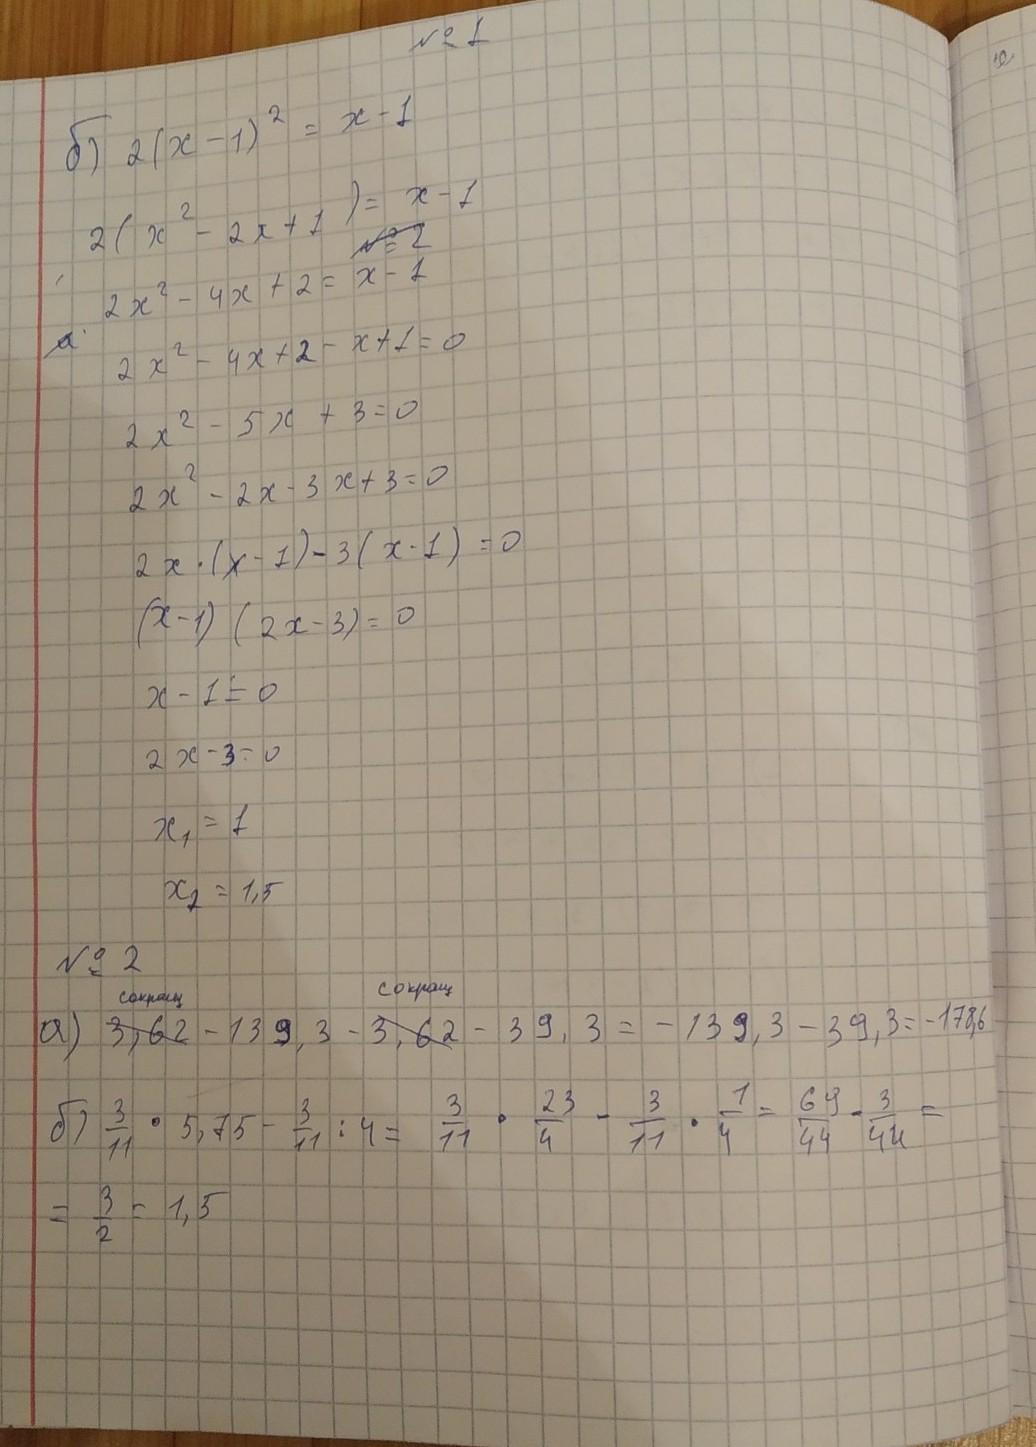 № 1
б) 2(x-1)² = x-1
2(x² - 2x+1) = x-1
№ 2
2x² - 4x + 2 = x - 1
а
2x² - 4x + 2 - x + 1 = 0
2x² - 5x + 3 = 0
2x² - 2x - 3x + 3 = 0
2x·(x-1) - 3(x-1) = 0
(x-1) (2x-3) = 0
x - 1 = 0
2x - 3 = 0
x₁ = 1
x₂ = 1,5
№ 2
сокращ сокращ
а) 3,62 - 139,3 - 3,62 - 39,3 = -139,3 - 39,3 = -178,6
б) 3/11 · 5,75 - 3/11 : 4 = 3/11 · 23/4 - 3/11 · 1/4 = 69/44 - 3/44 =
= 3/2 = 1,5